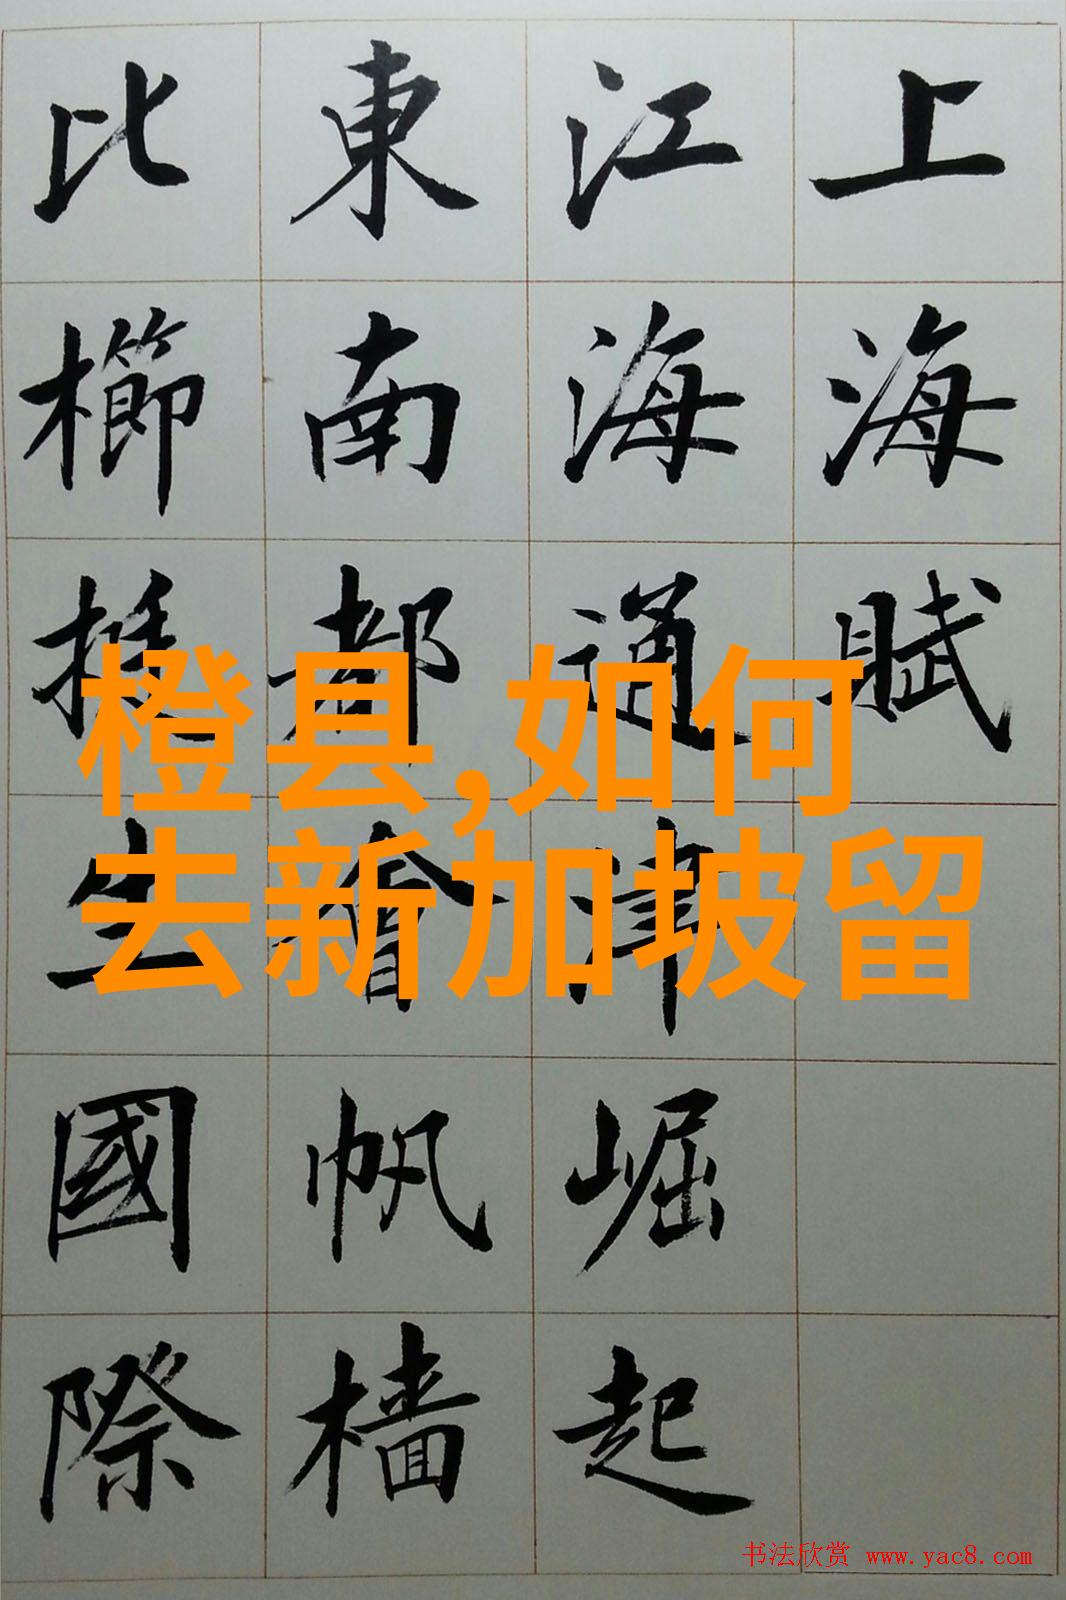 上海賦
江海通津崛起
東南都會帆檣
比櫛挺生國際
橙县,如何
去新加坡留
书法欣赏 www.yac8.com